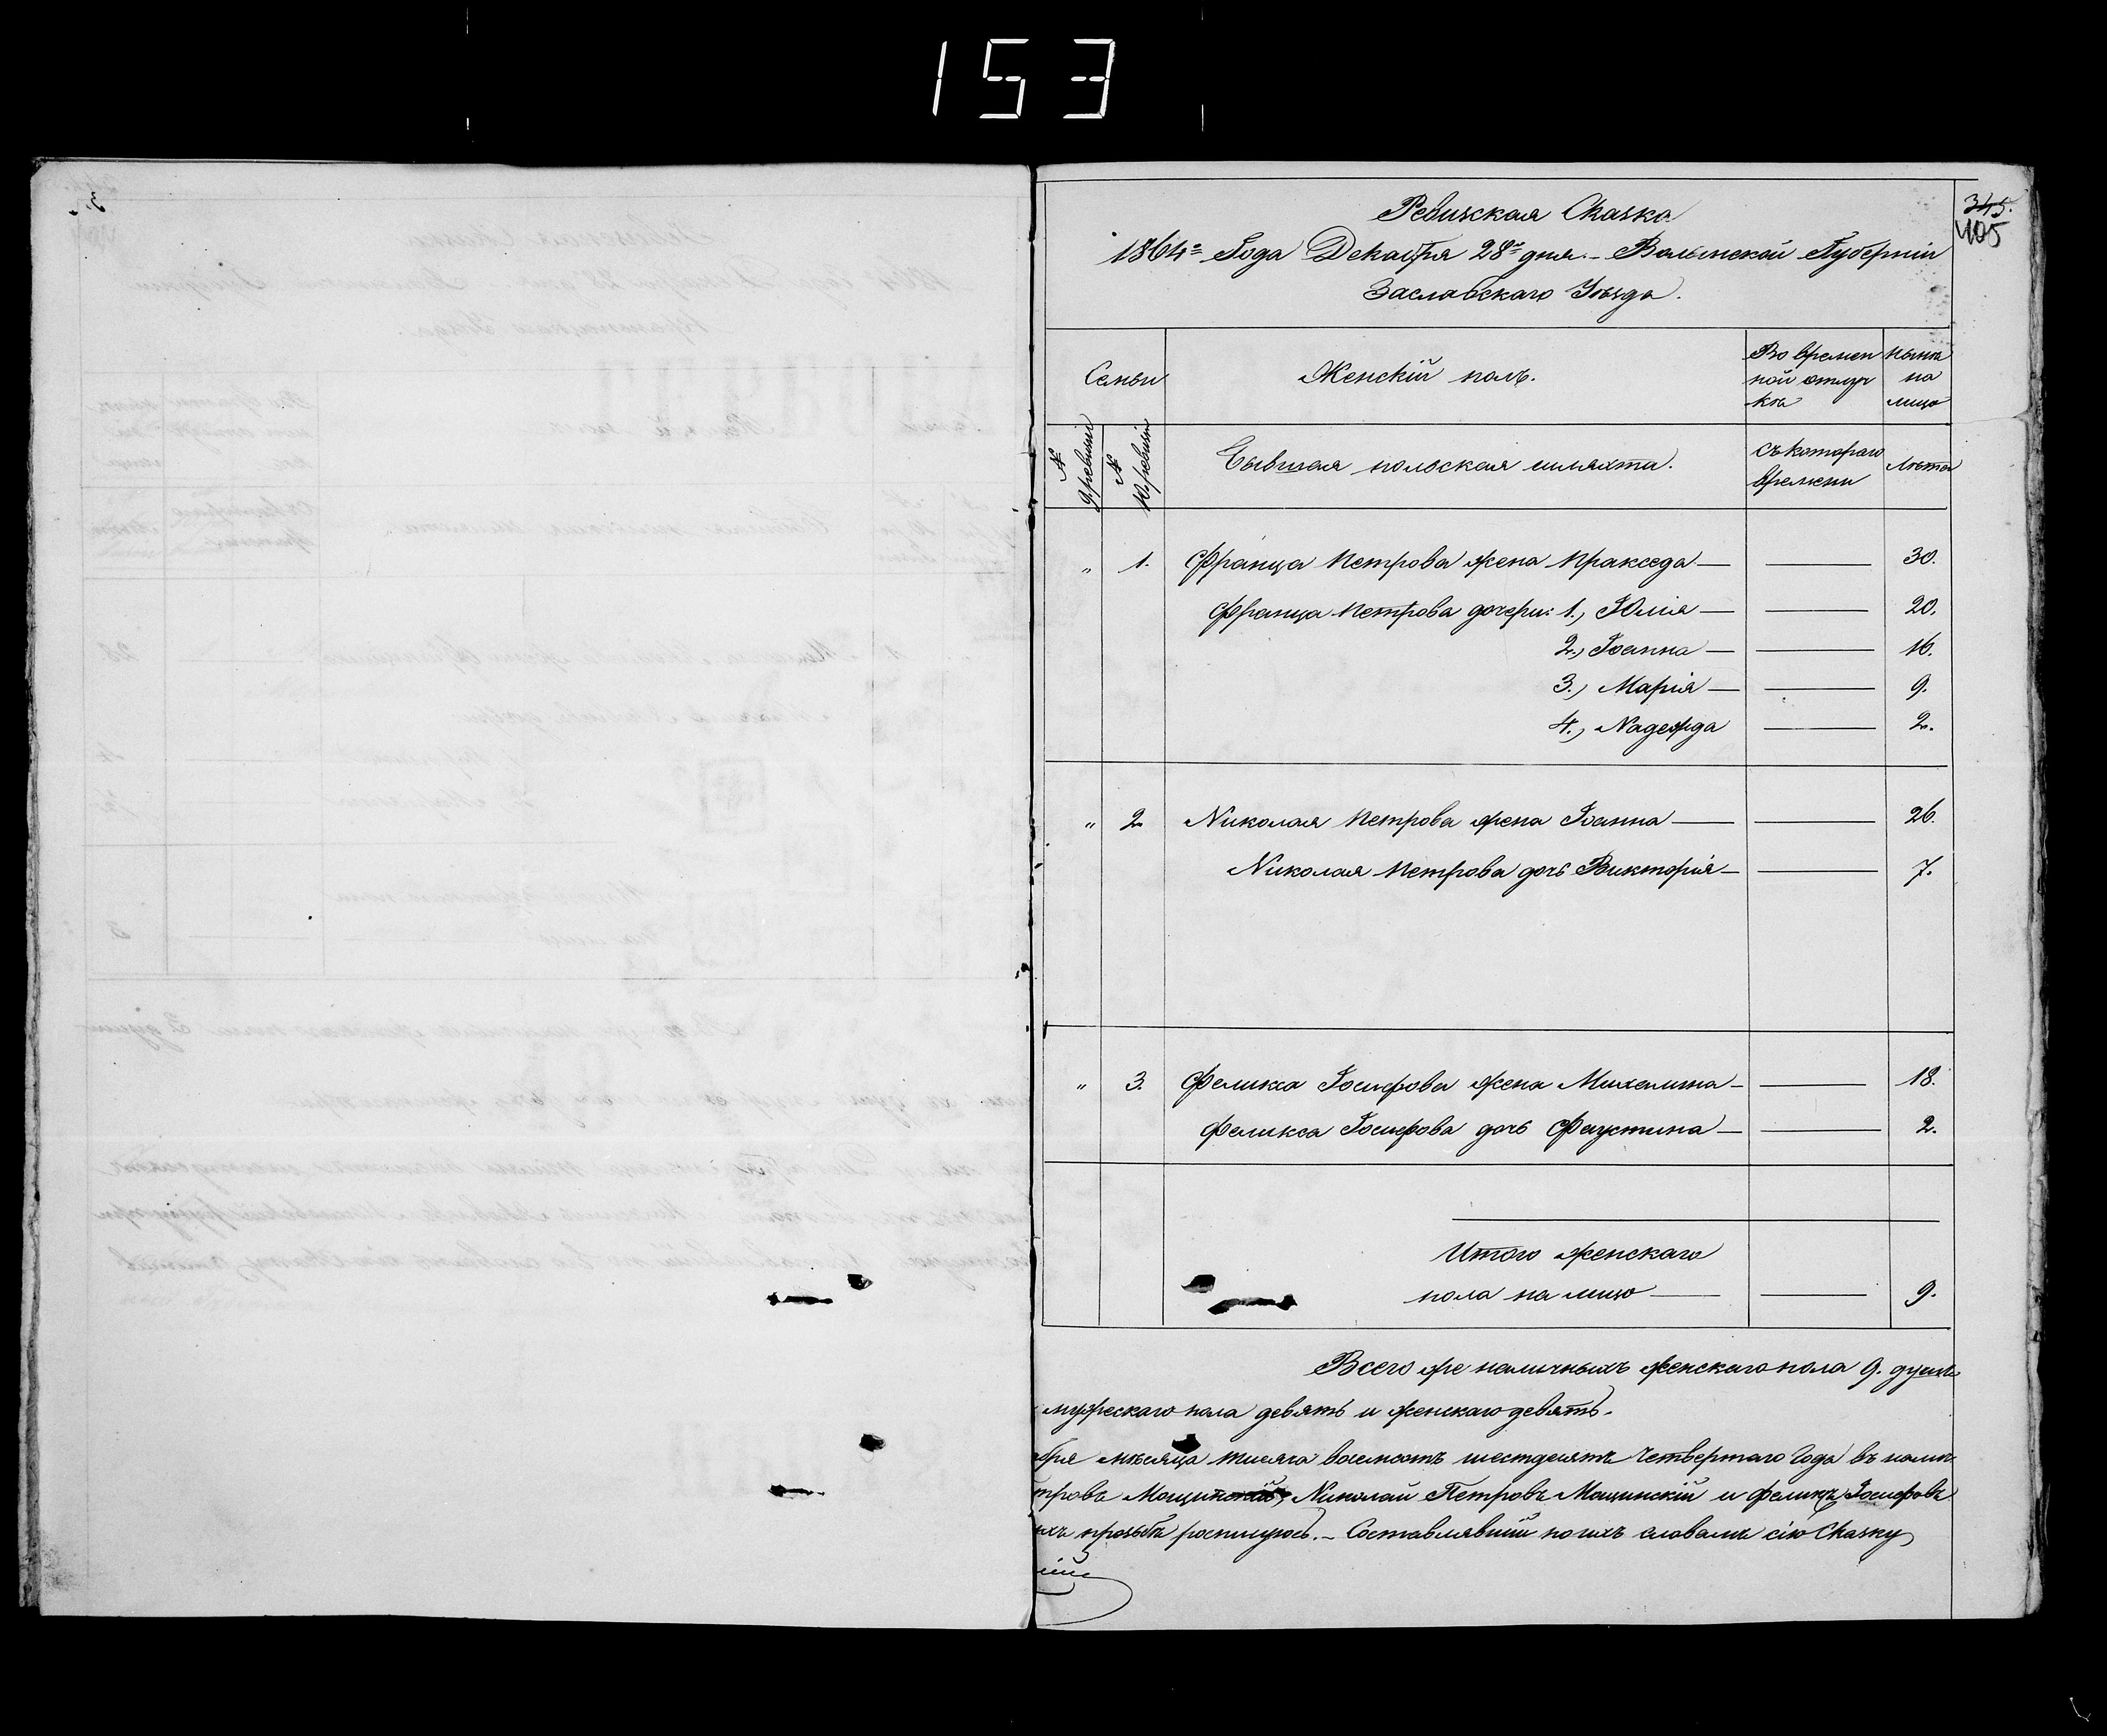 153
345.
405
Ревизская Сказка
1864го Года Декабря 28го дня.– Волынской Губерніи
Заславскаго Уѣзда.
Семьи
Женскій полъ.
Во времен
ной отлуч
кѣ
Нынѣ
на
лицо
№ 9 ревизіи
№ 10 ревизіи
Бывшая польская шляхта.
Съ котораго
времени
Лѣта
„ 1. Франца Петрова жена Пракседа — — 30.
Франца Петрова дочери: 1., Юлія — — 20.
2., Іоанна — — 16.
3., Марія — — 9.
4., Надежда — 2.
„ 2. Николая Петрова жена Іоанна — — 26.
Николая Петрова дочь Викторія — — 7.
„ 3. Феликса Іосифова жена Михалина — — 18.
Феликса Іосифова дочь Фаустина — — 2.
Итого женскаго
пола на лицо — — 9.
Всего же наличныхъ женскаго пола 9. душъ
мужескаго пола девять и женскаго девять.
бря мѣсяца тысяча восемсотъ шестдесятъ четвертаго Года въ
тровъ Николай Петровъ Мощинскій и Феликсъ Іосифовъ
ихъ прозьбѣ роспишусь. – Составлявшій по ихъ словамъ сію Сказку